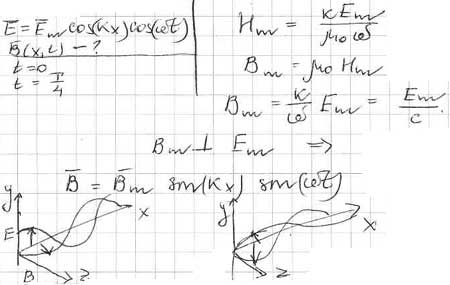 Ē = Ē_m cos(kx) cos(ωt)
B̄(x,t) – ?
t = 0
t = T/4
H_m = kE_m / μ₀ω
B_m = μ₀ H_m
B_m = k/ω E_m = E_m/c.
B_m ⊥ E_m ⇒
B̄ = B̄_m sin(kx) sin(ωt)
y
E
x
B
z
y
x
z